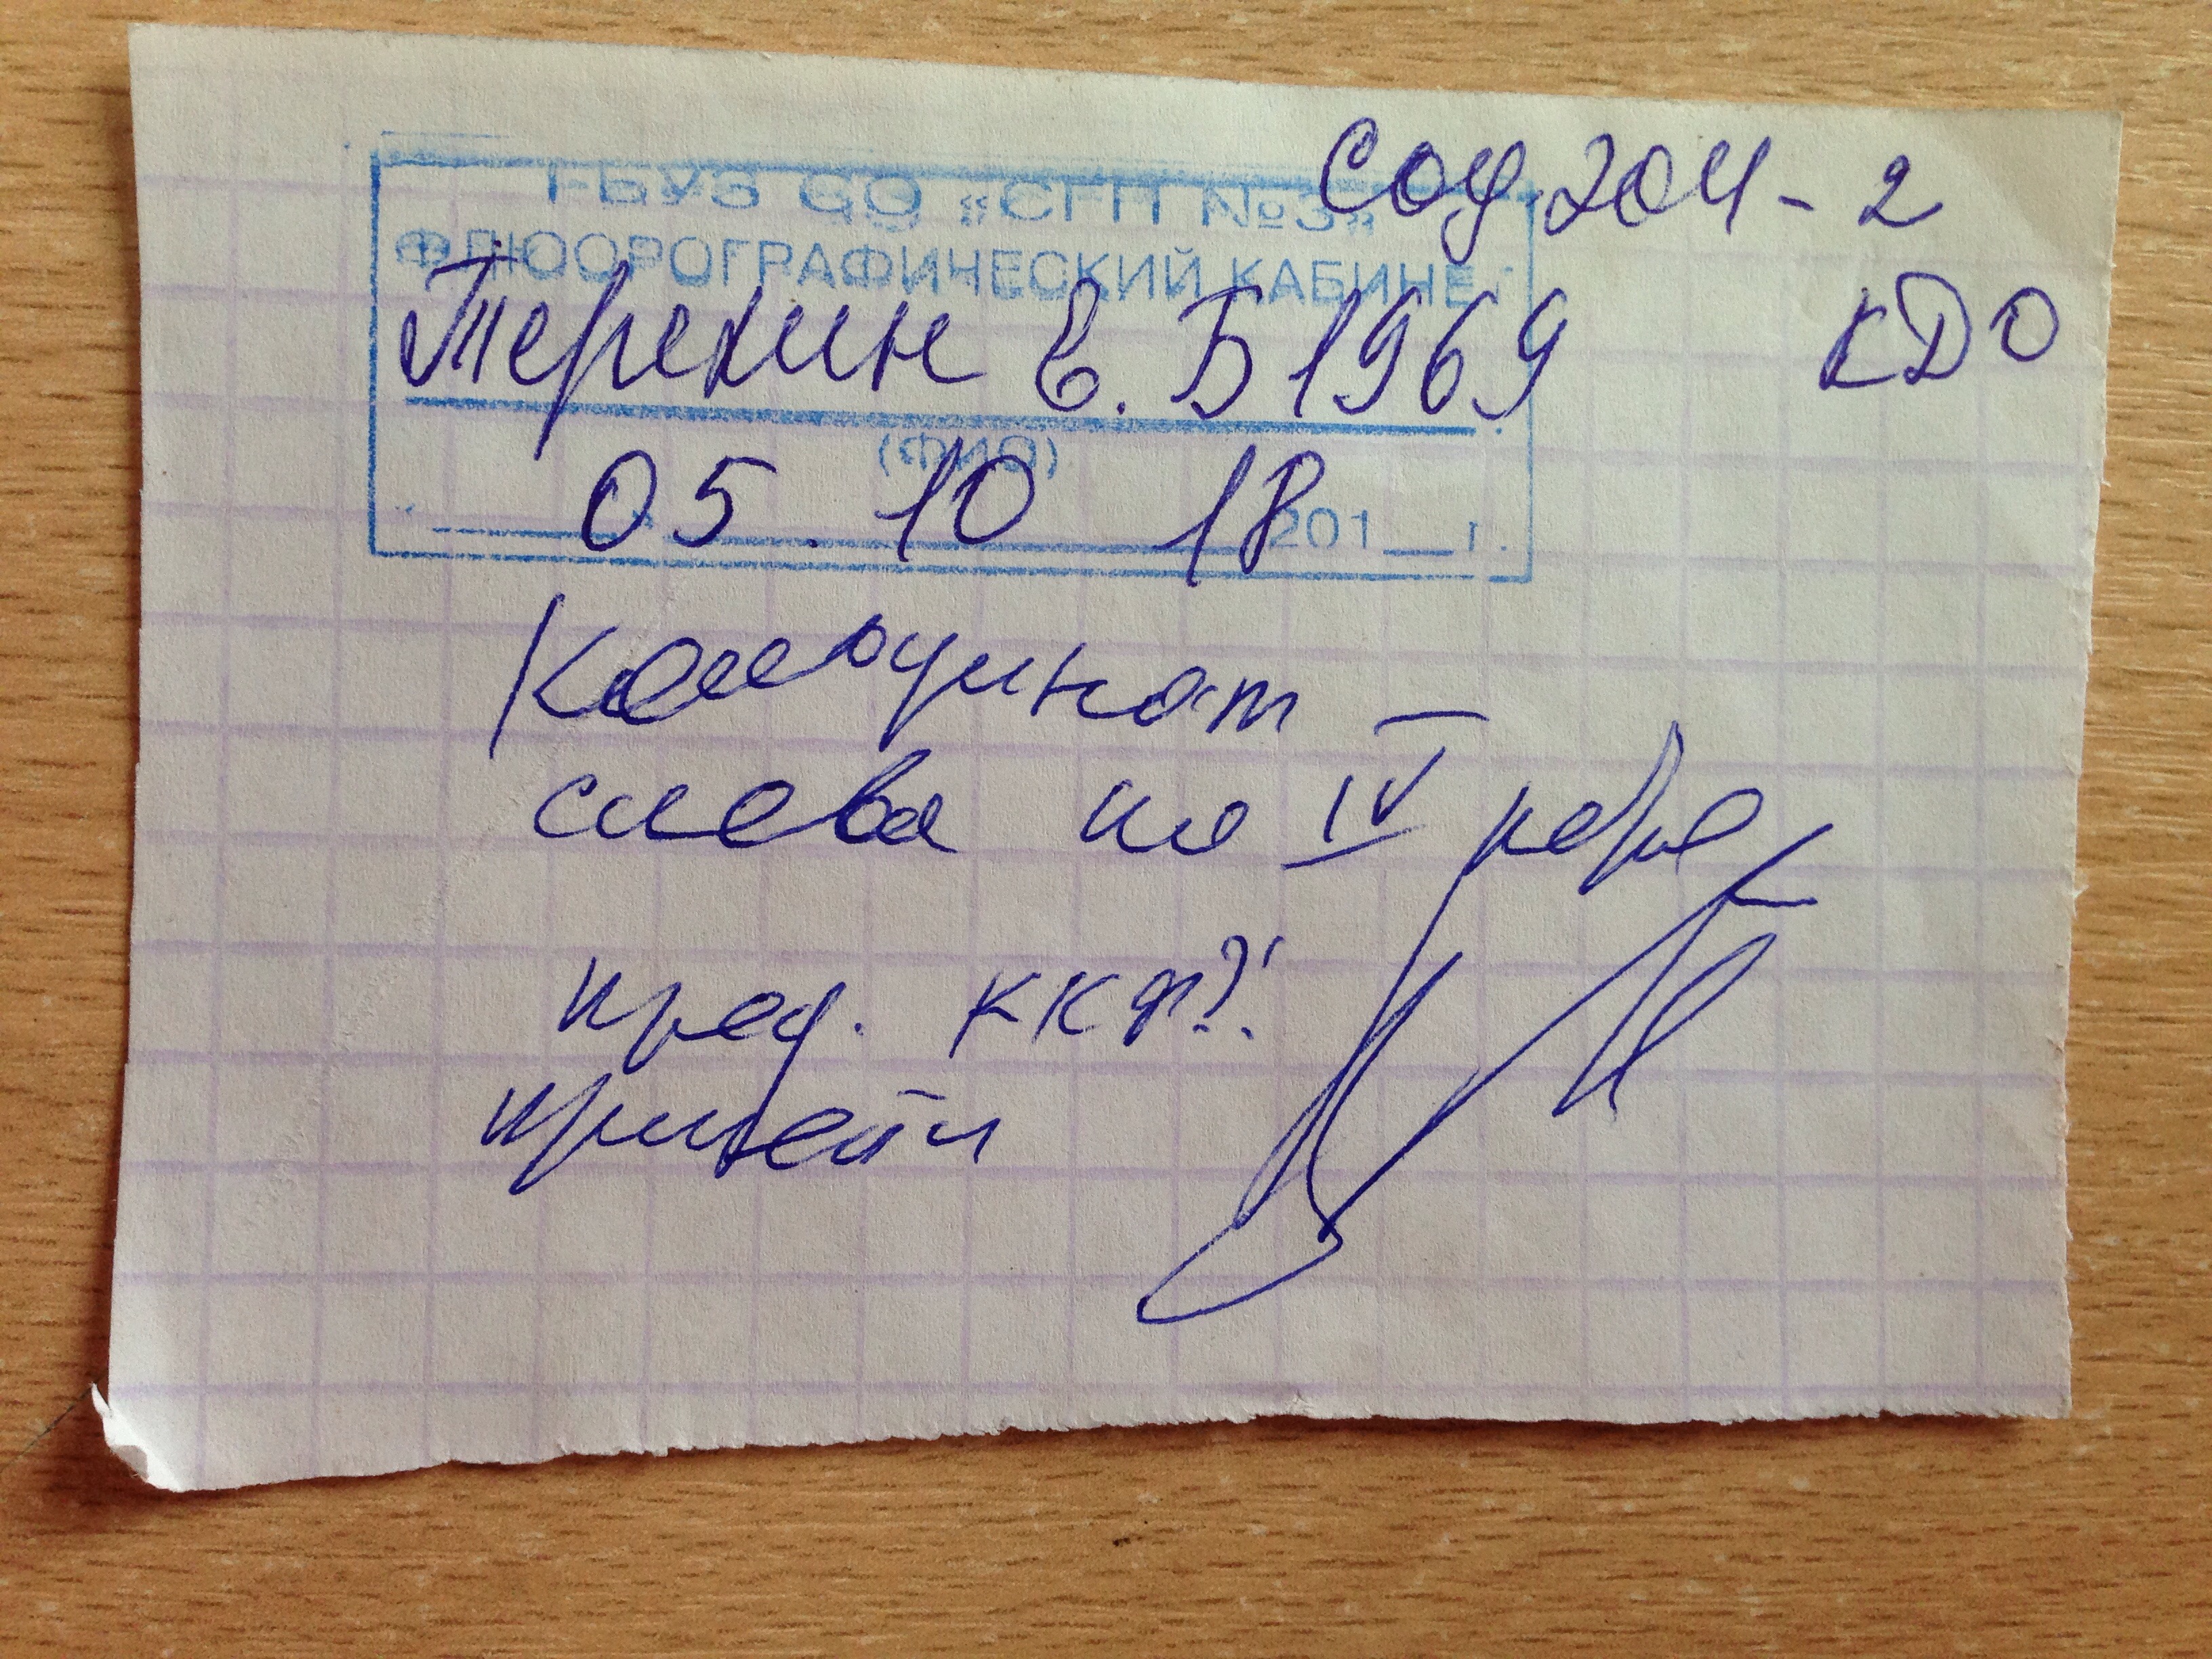 Сод 204-2
ГБУЗ СО «СГП №3»
ФЛЮОРОГРАФИЧЕСКИЙ КАБИНЕ
Терехин Е. Б 1969 КДО
(ФИО)
05. 10 18 201 г.
Кальцинат
слева по IV ребре
пред. ккф?!
принести